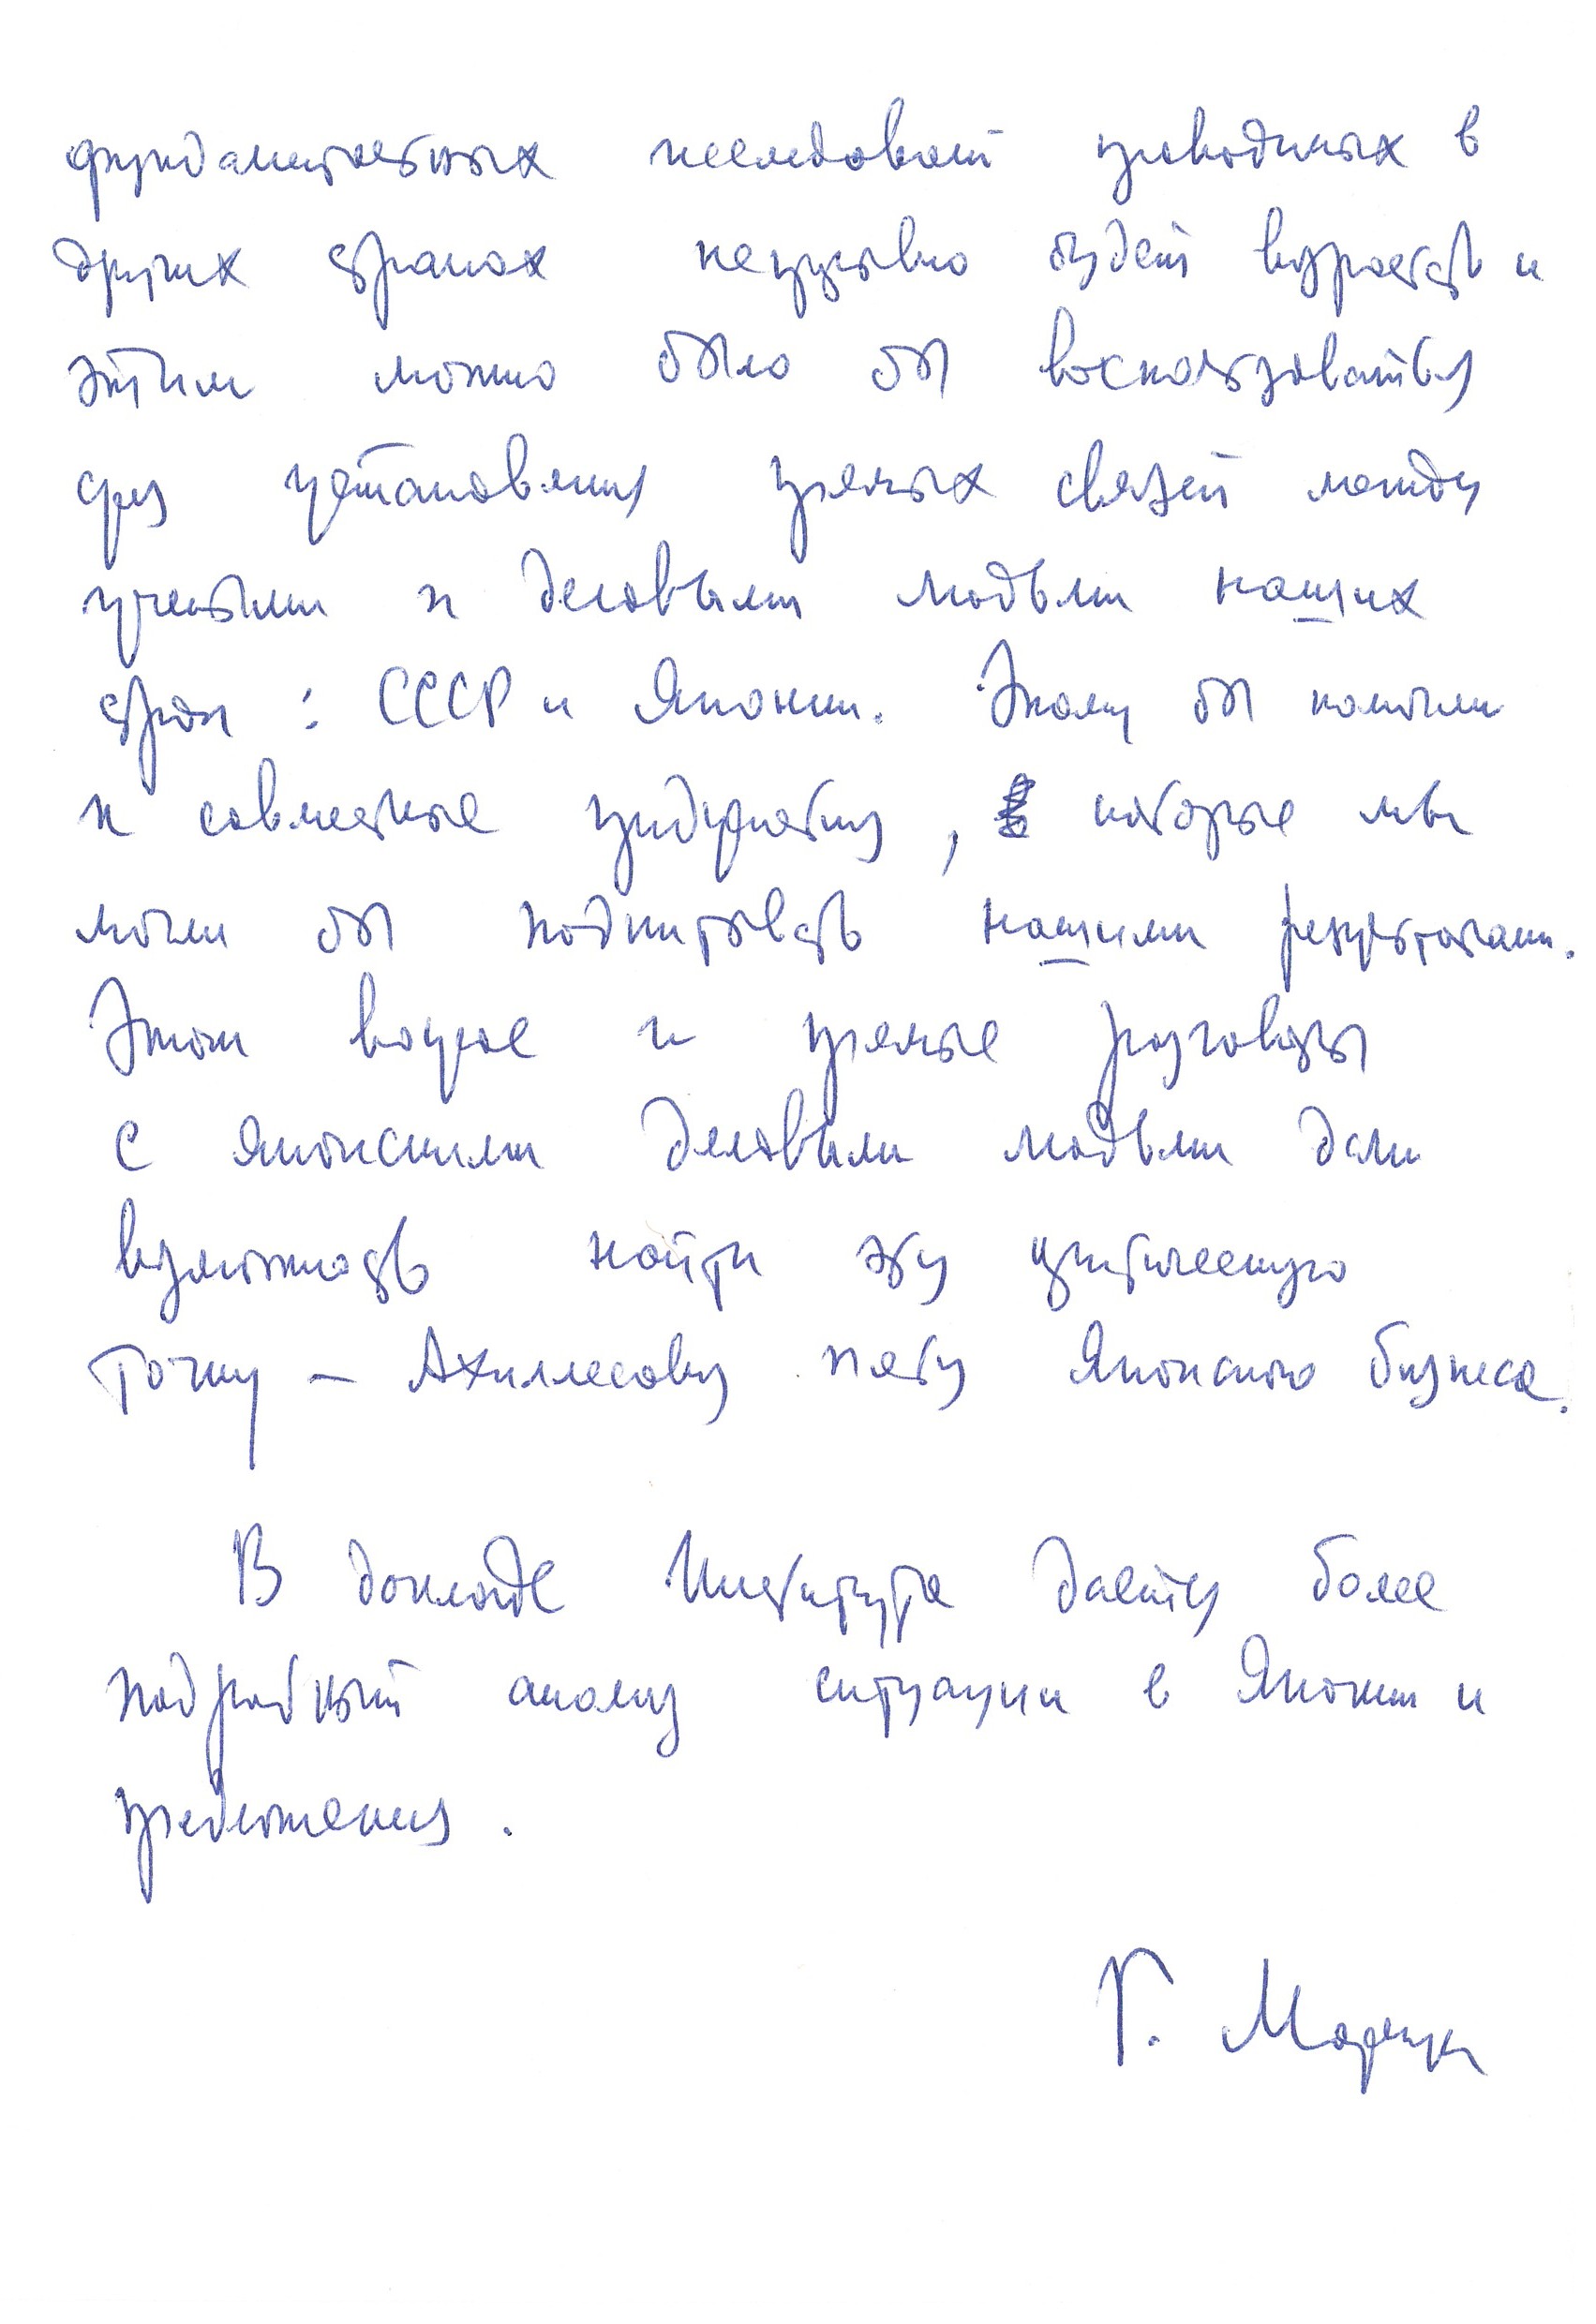 фундаментальных исследований проводимых в
других странах непрерывно будет возрастать и
этим можно было бы воспользоваться
для установления прямых связей между
учеными и деловыми людьми наших
стран : СССР и Японии. Этому бы помогли
и совместные предприятия, которые мы
могли бы подпитывать нашими результатами.
Этот вопрос и прямые разговоры
с японскими деловыми людьми дали
возможность найти эту критическую
точку – Ахиллесову пяту Японского бизнеса.
В докладе Института дается более
подробный анализ ситуации в Японии и
предложения.
Г. Марчук